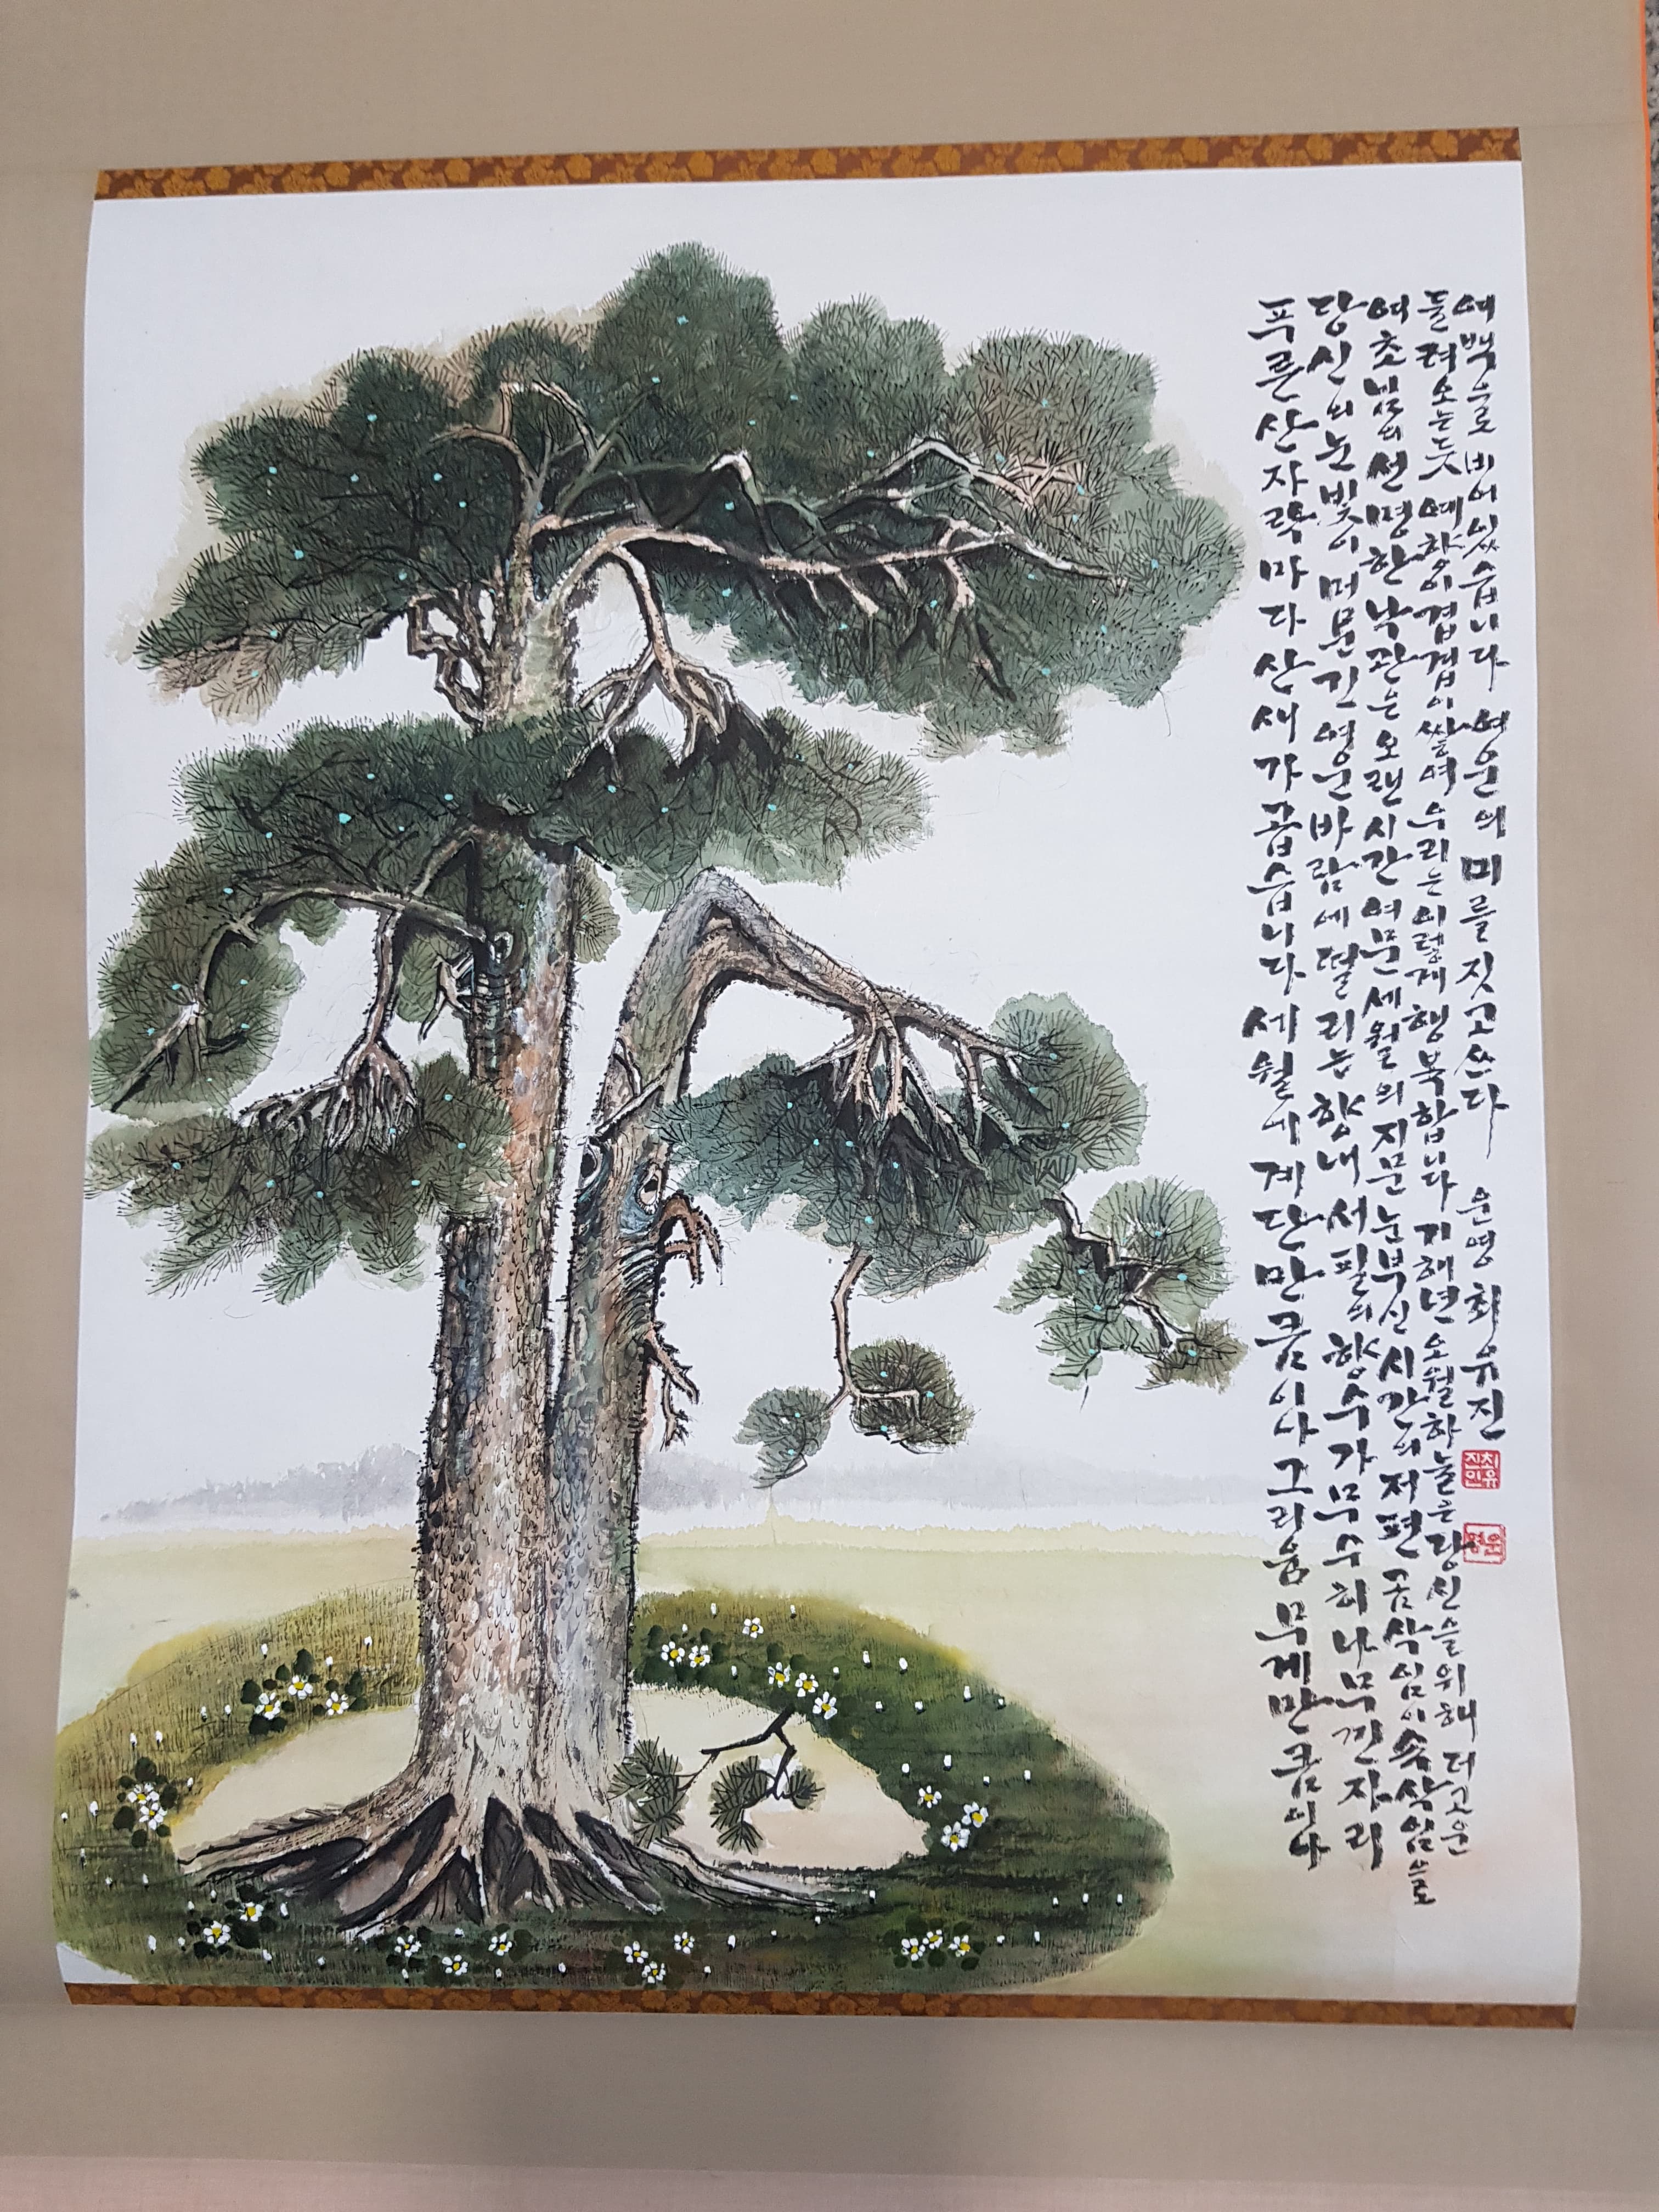 푸른 산자락마다 산새가 곱습니다 세월에 계단만큼이나 그리움 무게만큼이나
당신의 눈빛이 머문 긴 영운바람에 떨리는 향내 서필의 향수가 무수히 나부낀 자리
여초님의 선명한 낙관은 오랜 시간 여문 세월의 지문 눈부신 시간의 저편 곰삭임이 속삭임으로
들려오는 듯 예향이 겹겹이 쌓여 우리는 이렇게 행복합니다 기해년 오월 하늘은 당신을 위해 더 고운
여백으로 비어있습니다 여운의 미를 짓고 쓰다 운영 최유진
최유진인
운영